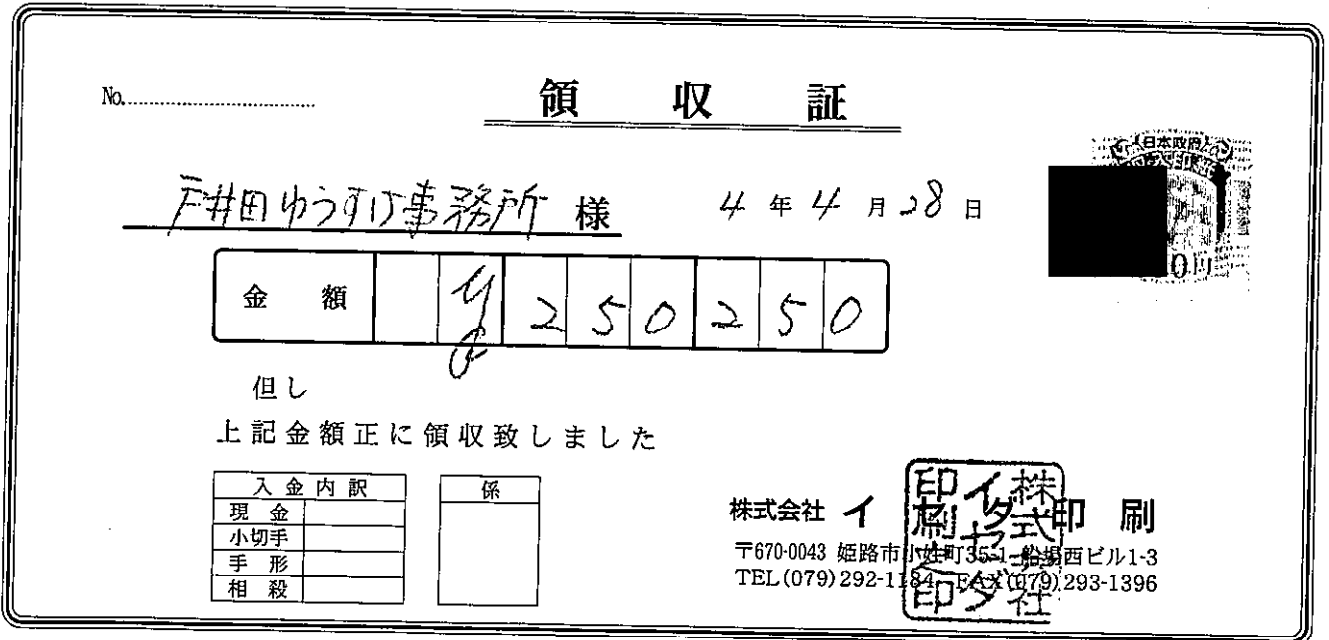 No.
領収証
戸井田ゆうすけ事務所 様 4年4月28日
日本政府
金額 ¥250250
但し
上記金額正に領収致しました
入金内訳
現金
小切手
手形
相殺
係
株式会社 イセダ印刷
〒670-0043 姫路市小姓町35-1 船場西ビル1-3
TEL(079)292-1184 FAX(079)293-1396
株式会社
イセダ
印刷之印